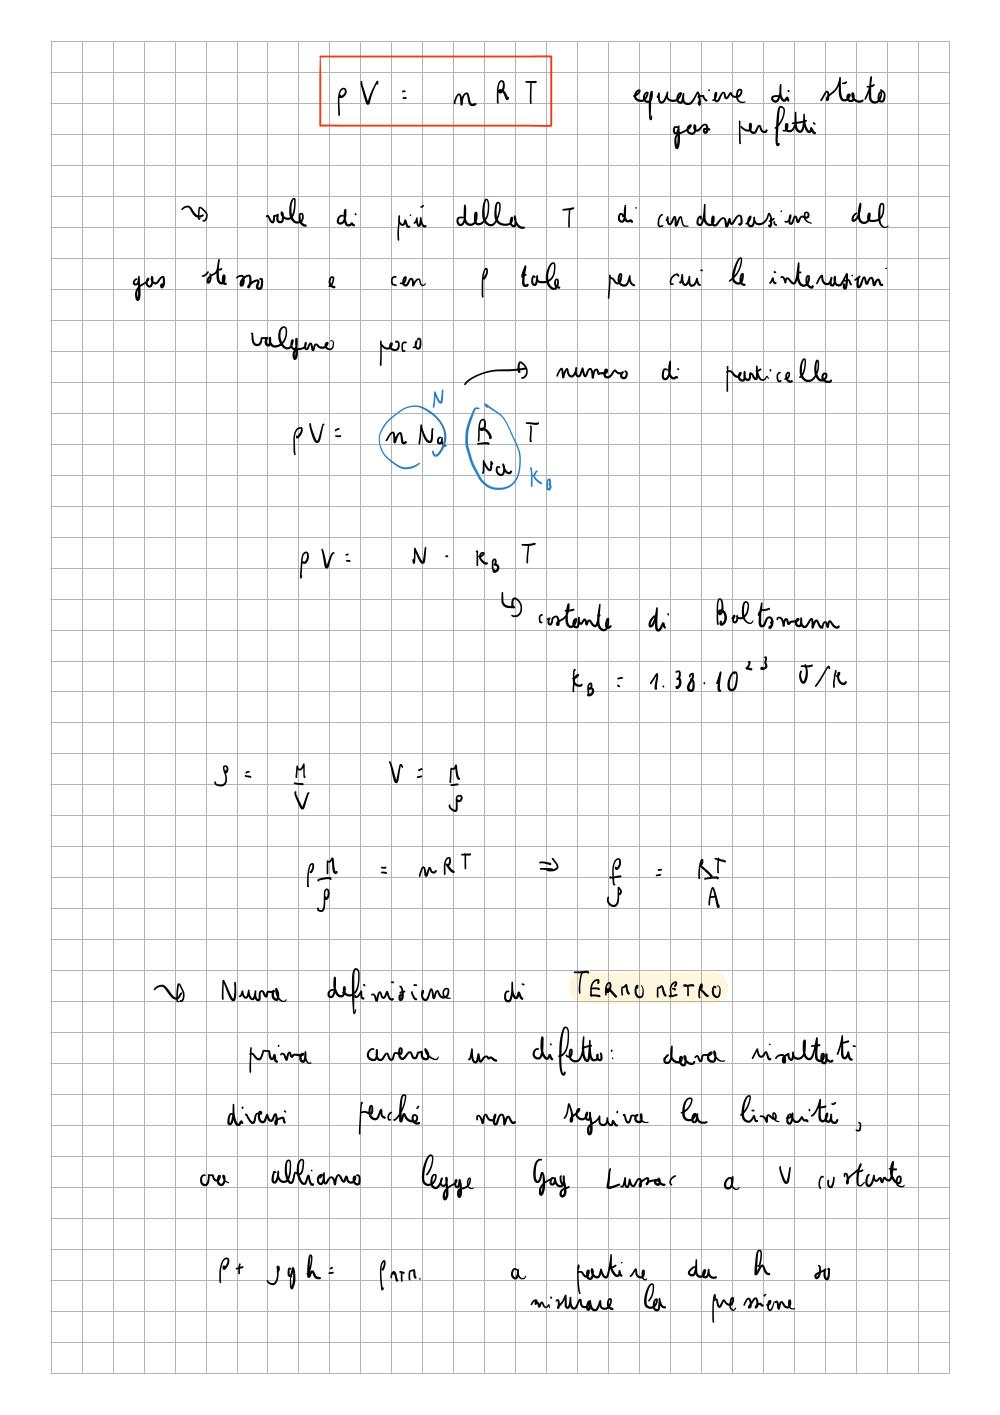 pV = nRT equazione di stato
gas perfetti
→ vale di più della T di condensazione del
gas stesso e con p tale per cui le interazioni
valgono poco
→ numero di particelle
N
pV = n Na R/Na T
KB
pV = N · KB T
↳ costante di Boltzmann
KB = 1.38 · 10^23 J/K
ρ = M/V V = M/ρ
p M/ρ = nRT ⇒ p/ρ = RT/A
→ Nuova definizione di TERMOMETRO
prima aveva un difetto: dava risultati
diversi perché non seguiva la linearità,
ora abbiamo legge Gay Lussac a V costante
p + ρgh = pATM. a partire da h so
misurare la pressione